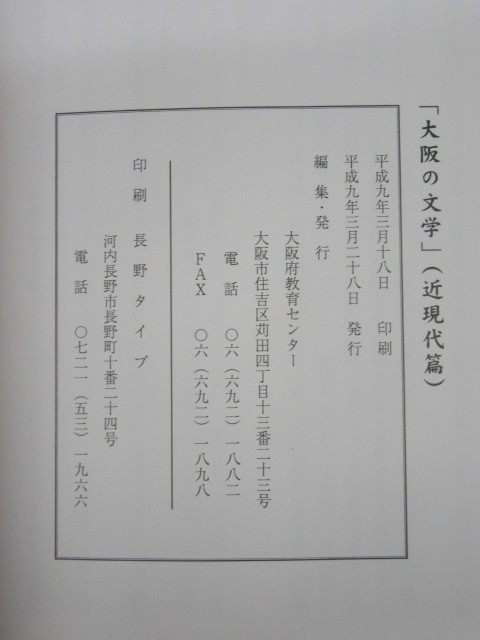 「大阪の文学」(近現代篇)
平成九年三月十八日 印刷
平成九年三月二十八日 発行
編集・発行
大阪府教育センター
大阪市住吉区苅田四丁目十三番二十三号
電話 〇六(六九二)一八八二
FAX 〇六(六九二)一八九八
印刷 長野タイプ
河内長野市長野町十番二十四号
電話 〇七二一(五三)一九六六